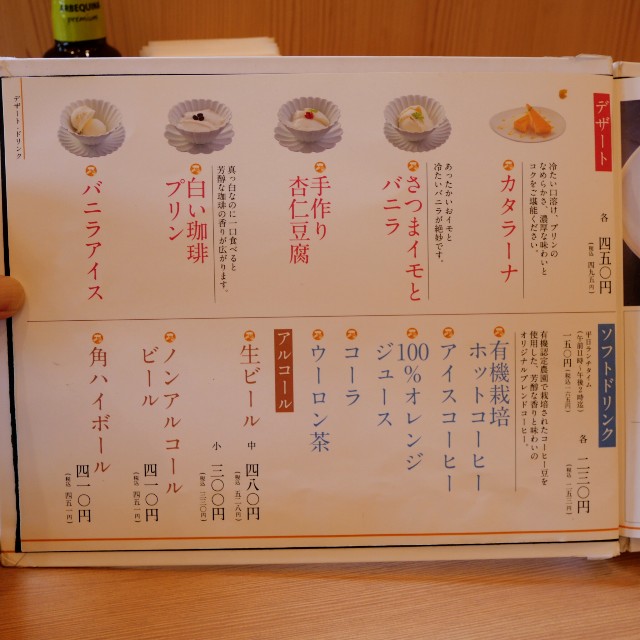 ARBEQUINA
premium
デザート・ドリンク
デザート
各 四五〇円
(税込 四九五円)
カタラーナ
冷たい口溶け、プリンの
なめらかさ、濃厚な味わいと
コクをご堪能ください。
さつまイモと
バニラ
あったかいおイモと
冷たいバニラが絶妙です。
手作り
杏仁豆腐
白い珈琲
プリン
真っ白なのに一口食べると
芳醇な珈琲の香りが広がります。
バニラアイス
ソフトドリンク
平日ランチタイム
一五〇円
(税込 一六五円)
各 二三〇円
(税込 二五三円)
有機栽培
ホットコーヒー
アイスコーヒー
有機認定農園で栽培されたコーヒー豆を
使用した、芳醇な香りと味わいの
オリジナルブレンドコーヒー。
100%オレンジ
ジュース
コーラ
ウーロン茶
アルコール
生ビール
中 四八〇円
(税込 五二八円)
小 三〇〇円
(税込 三三〇円)
ノンアルコール
ビール
四一〇円
(税込 四五一円)
角ハイボール
四一〇円
(税込 四五一円)